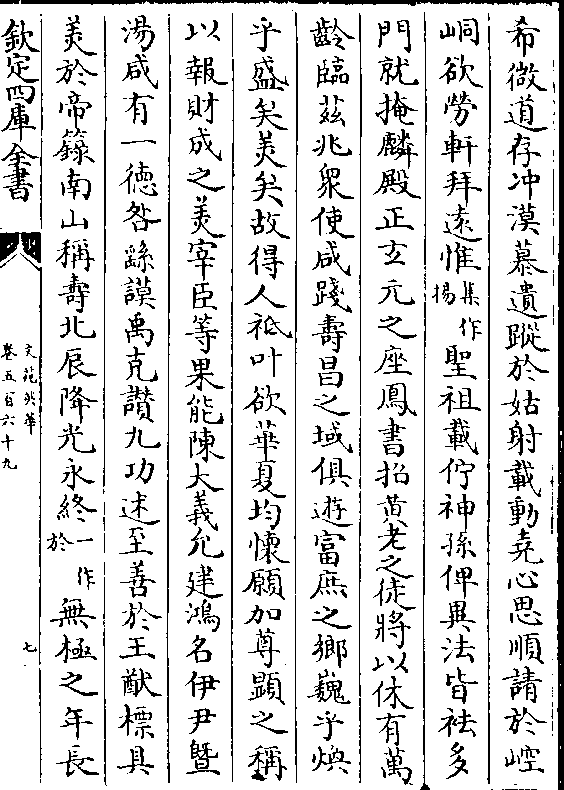 希微道存冲漠慕遺蹤於姑射載動堯心思順請於崆
峒欲勞軒拜遠惟集作揚聖祖載佇神孫俾異法皆祛多
門就掩麟殿正玄元之座鳳書招黄老之徒將以休有萬
齡臨茲兆衆使咸踐壽昌之域俱遊富庶之鄉巍乎煥
乎盛矣美矣故得人祗叶欲華夏均懷願加尊顯之稱
以報財成之美宰臣等果能陳大義允建鴻名伊尹曁
湯咸有一德咎繇謨禹克讚九功述至善於王猷標具
美於帝籙南山稱壽北辰降光永終一作於無極之年長
欽定四庫全書
文苑英華
卷五百六十九
七